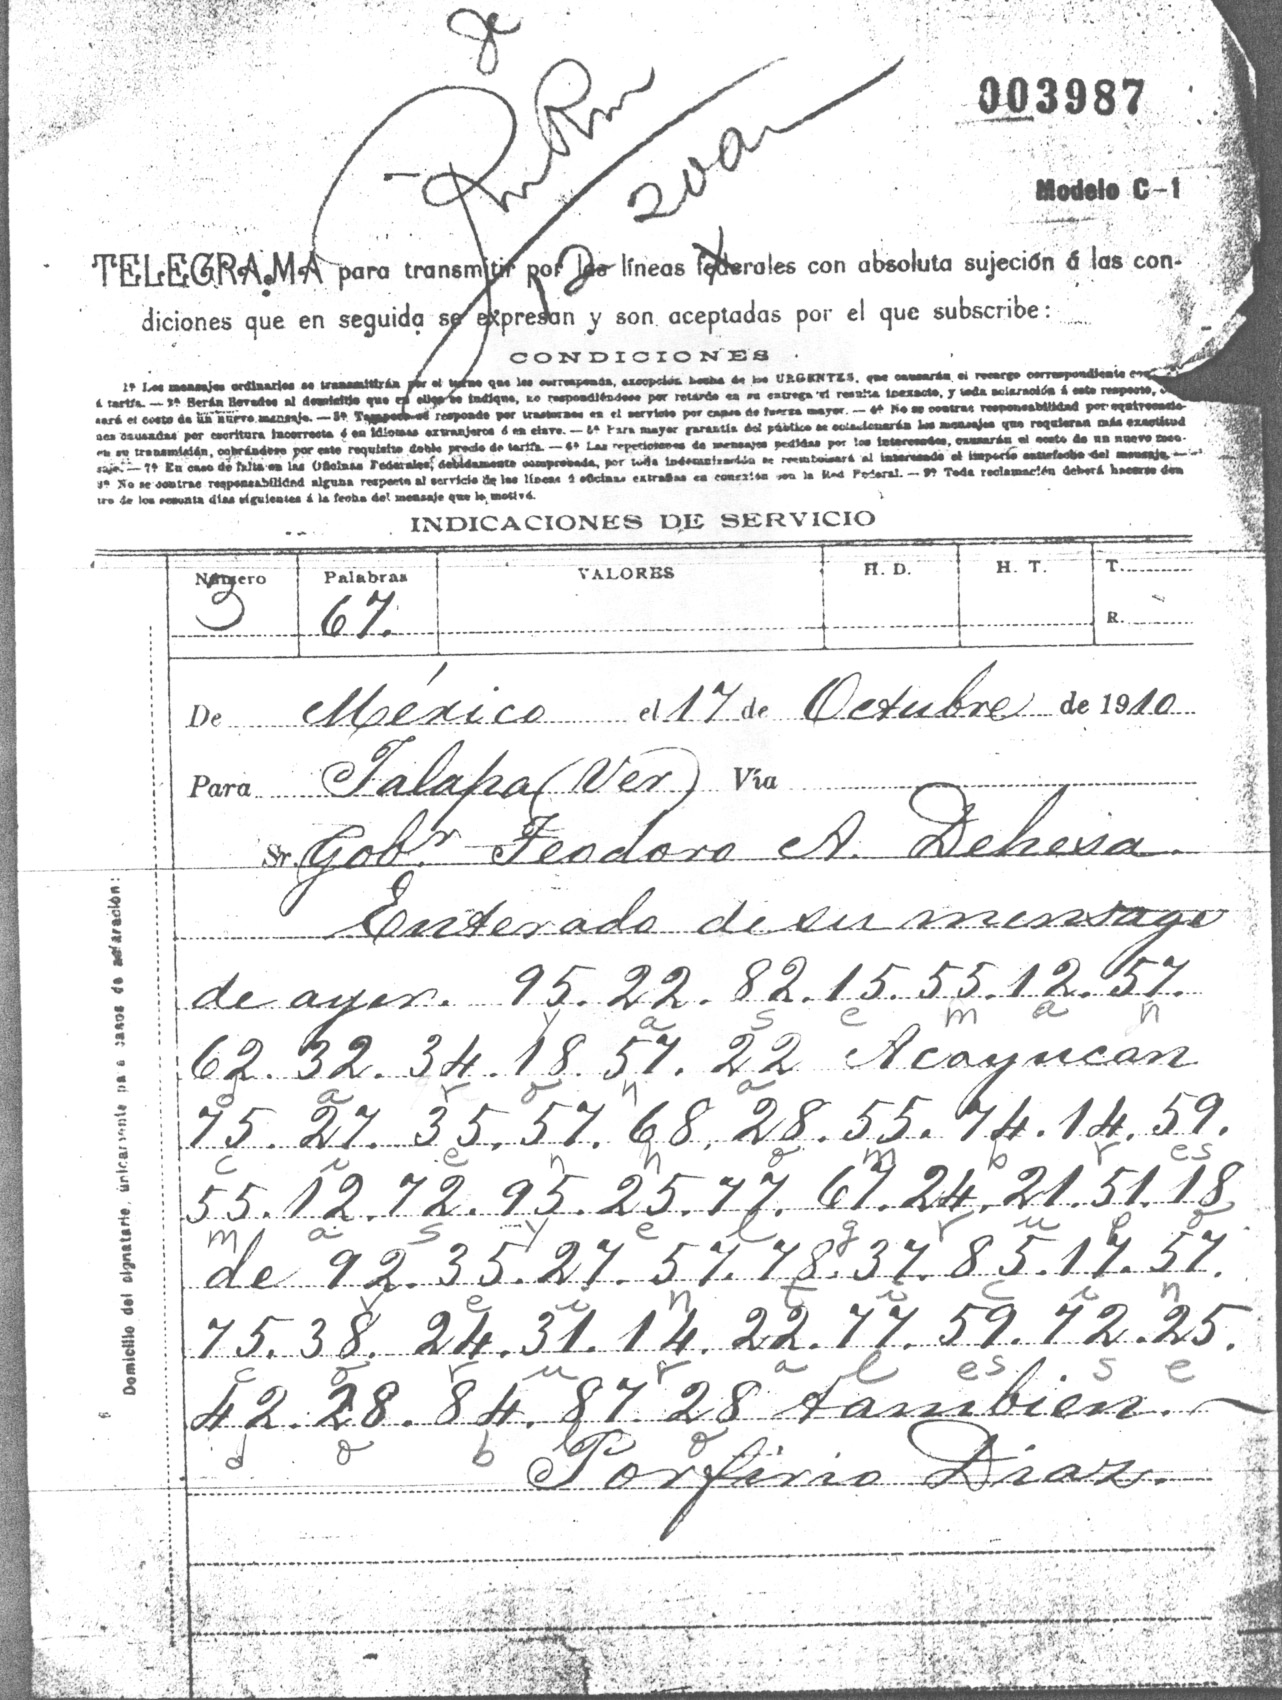 de
200
003987
Modelo C-1
12
TELEGRAMA para transmitir por las líneas federales con absoluta sujeción á las con-
diciones que en seguida se expresan y son aceptadas por el que subscribe:
CONDICIONES
1ª Los mensajes ordinarios se transmitirán por el turno que les corresponda, excepción hecha de los URGENTES, que causarán el recargo correspondiente
á tarifa. — 2ª Serán llevados al domicilio que en ellos se indique, no respondiéndose por retardo en su entrega si resulta inexacto, y toda aclaración á este respecto,
sará el costo de un nuevo mensaje. — 3ª Tampoco se responde por trastornos en el servicio por causa de fuerza mayor. — 4ª No se contrae responsabilidad por equivocacio-
nes causadas por escritura incorrecta ó en idiomas extranjeros ó en clave. — 5ª Para mayor garantía del público se colacionarán los mensajes que requieran más exactitud
en su transmisión, cobrándose por este requisito doble precio de tarifa. — 6ª Las repeticiones de mensajes pedidas por los interesados, causarán el costo de un nuevo men-
saje. — 7ª En caso de falta en las Oficinas Federales, debidamente comprobada, por toda indemnización se reembolsará al interesado el importe satisfecho del mensaje. —
8ª No se contrae responsabilidad alguna respecto al servicio de las líneas ú oficinas extrañas en conexión con la Red Federal. — 9ª Toda reclamación deberá hacerse den
tro de los sesenta días siguientes á la fecha del mensaje que la motivó.
INDICACIONES DE SERVICIO
Número Palabras VALORES H. D. H. T. T.
3 67. R.
De México el 17 de Octubre de 1910
Para Jalapa (Ver) Vía
Sr. Gobr. Teodoro A. Dehesa.
Enterado de su mensage
de ayer. 95. 22. 82. 15. 55. 12. 57.
y a s e m a n
62. 32. 34. 18. 57. 22 Acayucan
d a r o n a
75. 27. 35. 57. 68. 28. 55. 74. 14. 59.
c u e n h o m b r es
55. 12. 72. 95. 25. 77. 67. 24. 21. 51. 18
m a s y e l g r u p o
de 92. 35. 27. 57. 78. 37. 85. 17. 57.
v e u n t u c i n
75. 38. 24. 31. 14. 22. 77. 59. 72. 25.
c o r u r a l es s e
42. 28. 84. 87. 28 tambien.
d o b l o
Porfirio Diaz.
Domicilio del signatario, únicamente para casos de aclaración: